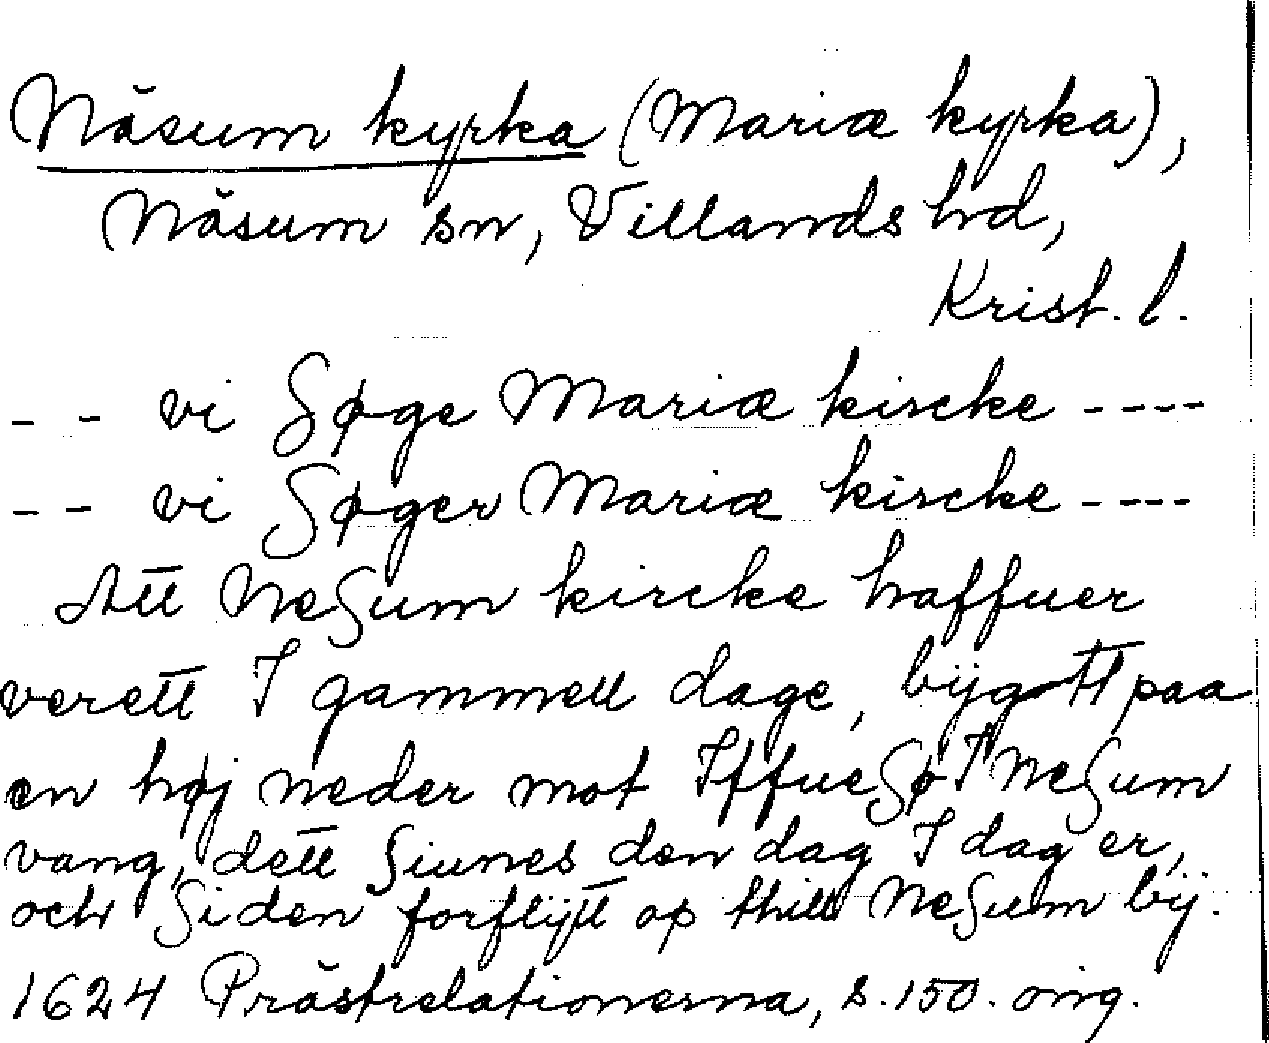 Näsum kyrka (Mariæ kyrka),
Näsum sn, Villands hd,
Krist. l.
- - vi Søge Mariæ kircke ----
- - vi Søger Mariæ kircke ----
Att Nesum kircke haffuer
verett I gammell dage, bÿgtt paa
en høj neder mot Iffuesø I Nesum
vang, dett siunes den dag I dag er,
och siden forflÿtt op thill Nesum bÿ.
1624 Prästrelationerna, s. 150. omg.